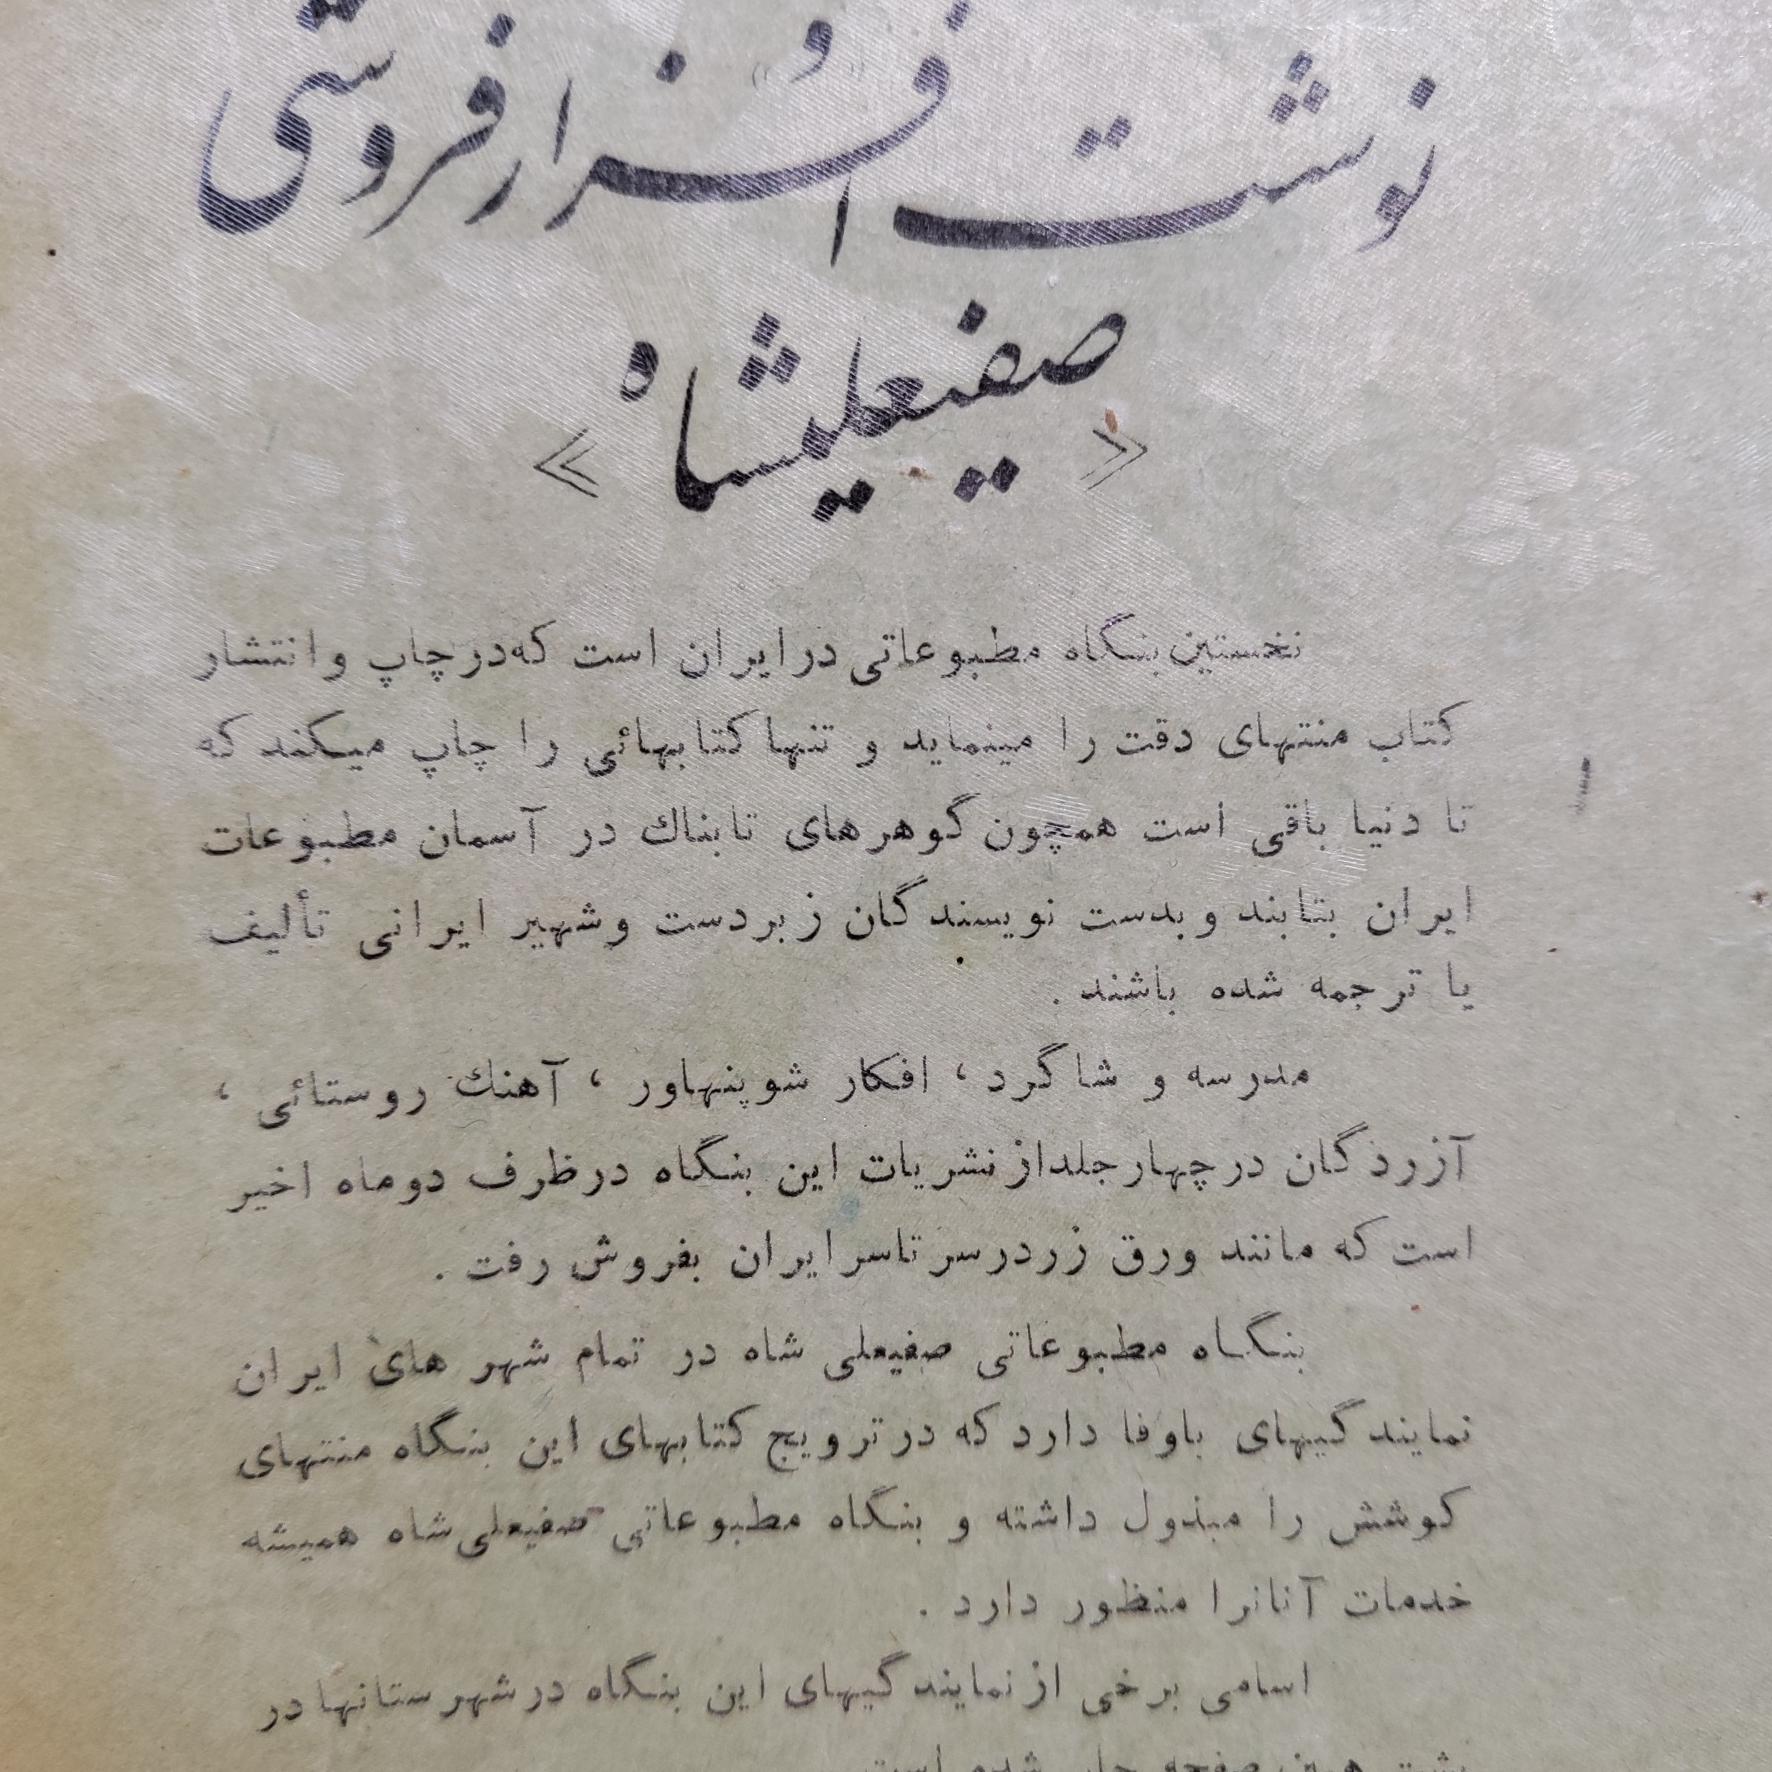 نوشت افزار فروشی
و
صفیعلیشاه
نخستین بنگاه مطبوعاتی در ایران است که در چاپ و انتشار
کتاب منتهای دقت را مینماید و تنها کتابهائی را چاپ میکند که
تا دنیا باقی است همچون گوهرهای تابناك در آسمان مطبوعات
ایران بتابند و بدست نویسندگان زبردست و شهیر ایرانی تألیف
یا ترجمه شده باشند .
مدرسه و شاگرد ، افکار شوپنهاور ، آهنك روستائی ،
آزردگان در چهار جلد از نشریات این بنگاه در ظرف دو ماه اخیر
است که مانند ورق زر در سر تا سر ایران بفروش رفت .
بنگاه مطبوعاتی صفیعلی شاه در تمام شهر های ایران
نمایندگیهای باوفا دارد که در ترویج کتابهای این بنگاه منتهای
کوشش را مبذول داشته و بنگاه مطبوعاتی صفیعلی شاه همیشه
خدمات آنانرا منظور دارد .
اسامی برخی از نمایندگیهای این بنگاه در شهرستانها در
پشت همین صفحه چاپ شده است